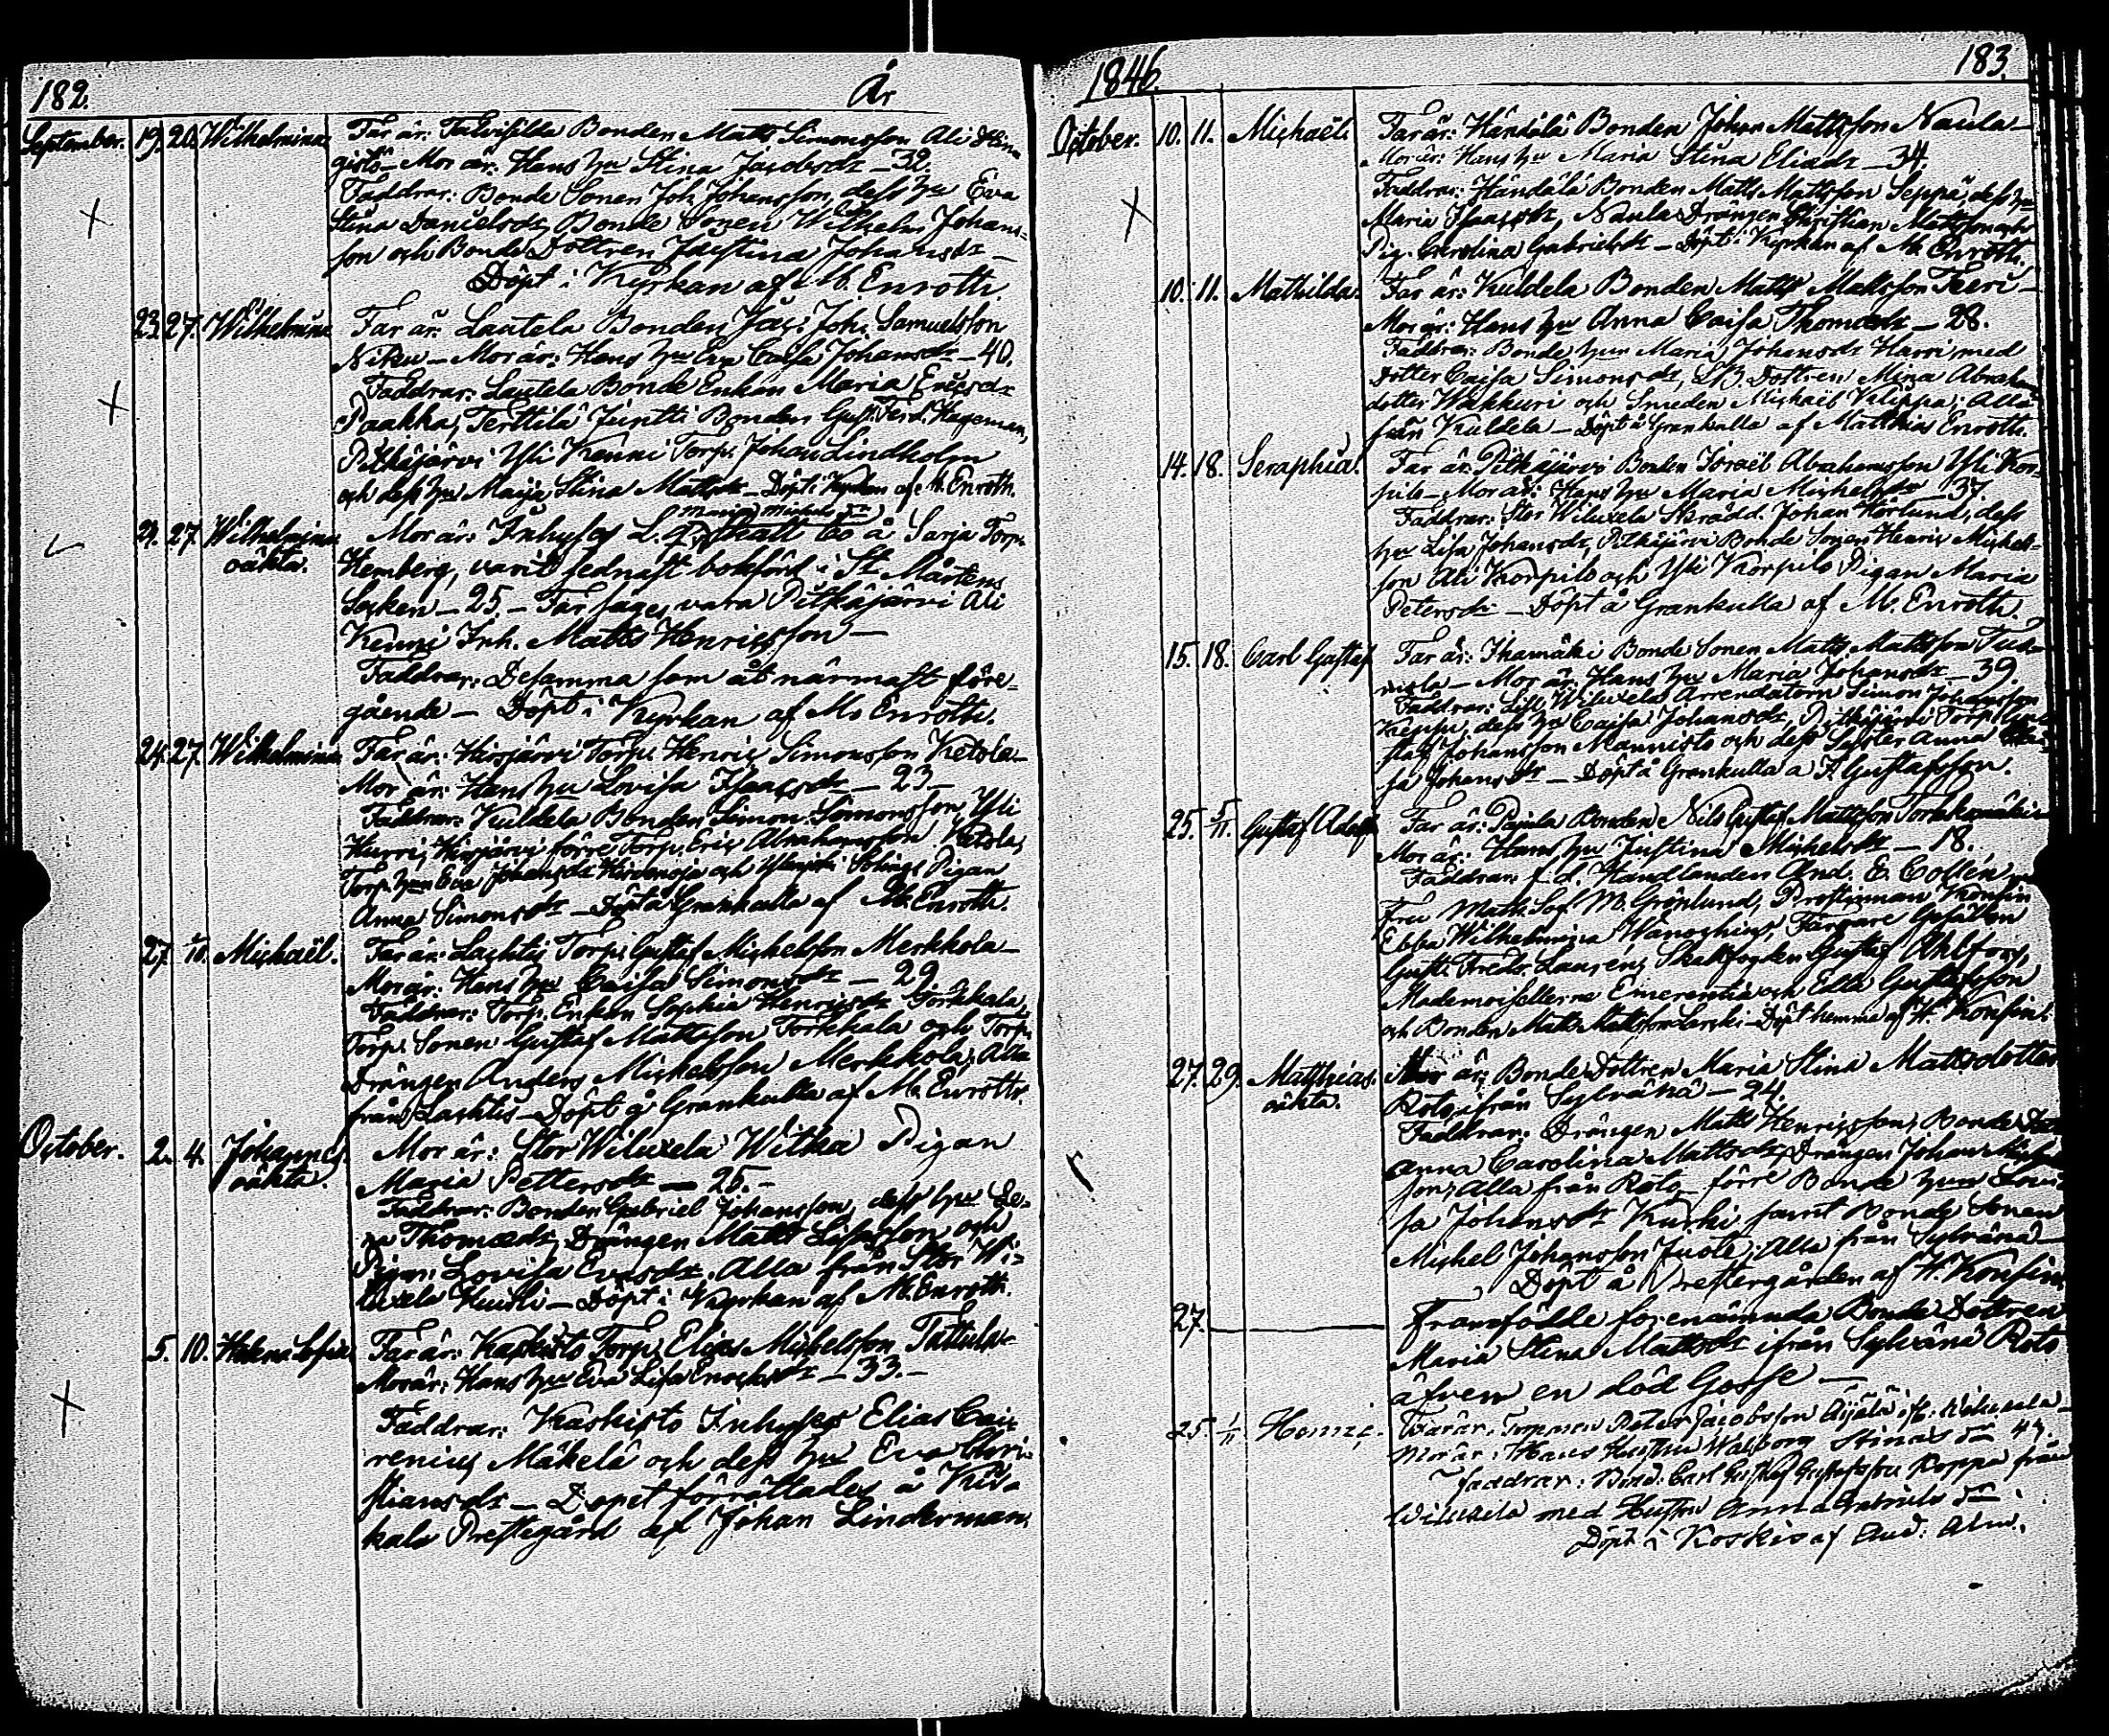 182. År
September. 19. 20. Wilhelmina. Far är: Talvisilda Bonden Matts Simonsson Ali
gistö – Mor är: Hans hu Stina Jacobsdr – 32.
Faddrar: Bonde Sonen Joh. Johansson, dess hu Eva
Stina Danielsdr, Bonde Sonen Wilhelm Johans-
son och Bonde Dottren Justina Johansdr –
Döpt i Kyrkan af M. Enroth.
23. 27. Wilhelmina Far är: Lautela Bonden Jac: Joh. Samuelsson
Niku – Mor är: Hans hu Eva Caisa Johansdr – 40.
Faddrar: Lautela Bonde Enkan Maria Ericsdr
Paakka, Terttilä Juntti Bonden Gust: Ferd. Hageman,
Pitkäjärvi Yli Kenni Torp. Johan Lindholm
och dess hu Maija Stina Mattsdr – Döpt i Kyrkan af M. Enroth.
Maria Michels dr
24. 27. Wilhelmina Mor är: Inhyses L. å Sarja Torp.
oäkta. Hemberg, varit sednast bokförd i St. Mårtens
Socken – 25. – Far säges vara Pitkäjärvi Ali
Kenni Inh. Matts Henricsson –
Faddrar: Desamma som åt närmast före-
gående – Döpt i Kyrkan af M. Enroth.
24. 27. Wilhelmina Far är: Hirsjärvi Torp. Henric Simonsson Ketola –
Mor är: Hans hu Lovisa Isaacsdr – 23 –
Faddrar: Kuldela Bonden Simon Simonsson Yli
Hurri, Hirsjärvi förre Torp. Eric Abrahamsson Ketola,
Torp. hun Eva Johansdr Hirvenoja och Pigan
Anna Simonsdr – Döpt å Grankulla af M. Enroth.
27. 1/10. Michaël. Far är: Lachtis Torp. Gustaf Michelsson Merkkola –
Mor är: Hans hu Caisa Simonsdr – 29.
Faddrar: Torp. Enkan Sophia Henricsdr Torkkala,
Torp. Sonen Gustaf Mattsson Torkkala och Torp.
Drängen Anders Michelsson Merkkola, Alla
från Lachtis – Döpt å Grankulla af M. Enroth.
October. 2. 4. Johannes. Mor är: Stor Wiluxela Witka Pigan
oäkta. Maria Pettersdr – 25. –
Faddrar: Bonden Gabriel Johansson, dess hu Le-
na Thomasdr, Drängen Matts Lisasson och
Pigan Lovisa Evasdr. Alla från Stor Wi-
luxela Kuisti – Döpt i Kyrkan af M. Enroth.
5. 10. Helena Sofia Far är: Kaskisto Torp. Elias Michelsson Tattula –
Mor är: Hans hu Eva Lisa Enochsdr – 33. –
Faddrar: Kaskisto Inhyses Elias Cai-
renius Mäkelä och dess hu Eva Chri-
stiansdr – Dopet förrättades å Kiu-
kala Prestegård af Johan Linderman.
1846. 183.
October. 10. 11. Michaël. Far är: Händälä Bonden Johan Mattsson Naula –
Mor är: Hans hu Maria Stina Eliædr – 34.
Faddrar: Händälä Bonden Matts Mattsson Seppä, dess hu
Maria Isaacsdr, Naula Drängen Christian Mattsson och
Pig. Carolina Gabrielsdr – Döpt i Kyrkan af M. Enroth.
10. 11. Mathilda. Far är: Kuldela Bonden Matts Mattsson Teeri –
Mor är: Hans hu Anna Caisa Thomædr – 28.
Faddrar: Bonde hun Maria Johansdr Harri med
Dotter Caisa Simonsdr, Dottren Mina Abraham
dotter Wakkuri och Smeden Michaël Kilippa; Alla
från Kuldela – Döpt å Grankulla af Matthias Enroth.
14. 18. Seraphia. Far är: Pitkäjärvi Bonden Israël Abrahamsson Yli Kor-
pilo – Mor är: Hans hu Maria Michelsdr – 37.
Faddrar: Stor Wiluxela Skrädd. Johan Hörlund, dess
hu Lisa Johansdr, Pitkäjärvi Bonde Sonen Henric Michels-
son Ali Korpilo och Yli Korpilo Pigan Maria
Petersdr – Döpt å Grankulla af M. Enroth.
15. 18. Carl Gustaf Far är: Ihamäki Bonde Sonen Matts Mattsson
Mor är: Hans hu Maria Johansdr – 39.
Faddrar: Lill Wiluxela Arrendatorn Simon Johansson
Keppu, dess hu Caisa Johansdr, Pitkäjärvi Torp. Gu-
staf Johansson Mannisto och dess Syster Anna
sa Johansdr – Döpt å Grankulla a F. Gustafsson.
25. 5/11. Gustaf Adolf Far är: Pajula Bonden Nils Gustaf Mattsson Torkkomäki –
Mor är: Hans hu Justina Michelsdr – 18.
Faddrar: f. d. Handlanden And. E. Collén,
Fru Math. Sof. M. Grönlund, Prostinnan Konsin
Ebba Wilhelmina Wänochius, Färgare Gesällen
Gust. Fredr. Laurens, Skallfogden Gustaf Ahlfors,
Mademoisellerne Emerentia och Ella Gustafsson
och Bonden Matts Mattsson Lanski – Döpt hemma af H. Konsin.
27. 29. Matthias. Mor är: Bonde Dottren Maria Stina Mattsdotter
oäkta. Roto, ifrån Sylvänä – 24.
Faddrar: Drängen Matts Henricsson, Bonde
Anna Carolina Mattsdr, Drängen Johan
son; Alla från Roto, förre Bonde hun Lovi-
sa Johansdr Kurki samt Bonde Sonen
Michel Johansson Juote; Alla från Sylvänä –
Döpt å Prestergården af H. Konsin.
27. Framfödde förenämnda Bonde Dottren
Maria Stina Mattsdr ifrån Sylvänä Roto
äfven en död Gosse –
25. 1/11 Henric. Far är: Torparen Peter Jacobsson Äijälä ifr. Wiluxela –
Mor är: Hans Hustru Walborg Stinas dr 43.
Faddrar: Bond. Carl Gustaf Gustafsson Roppa från
Wiluxela med Hustru Anna Gabriels dr.
Döpt i Koskis af And: Alm.